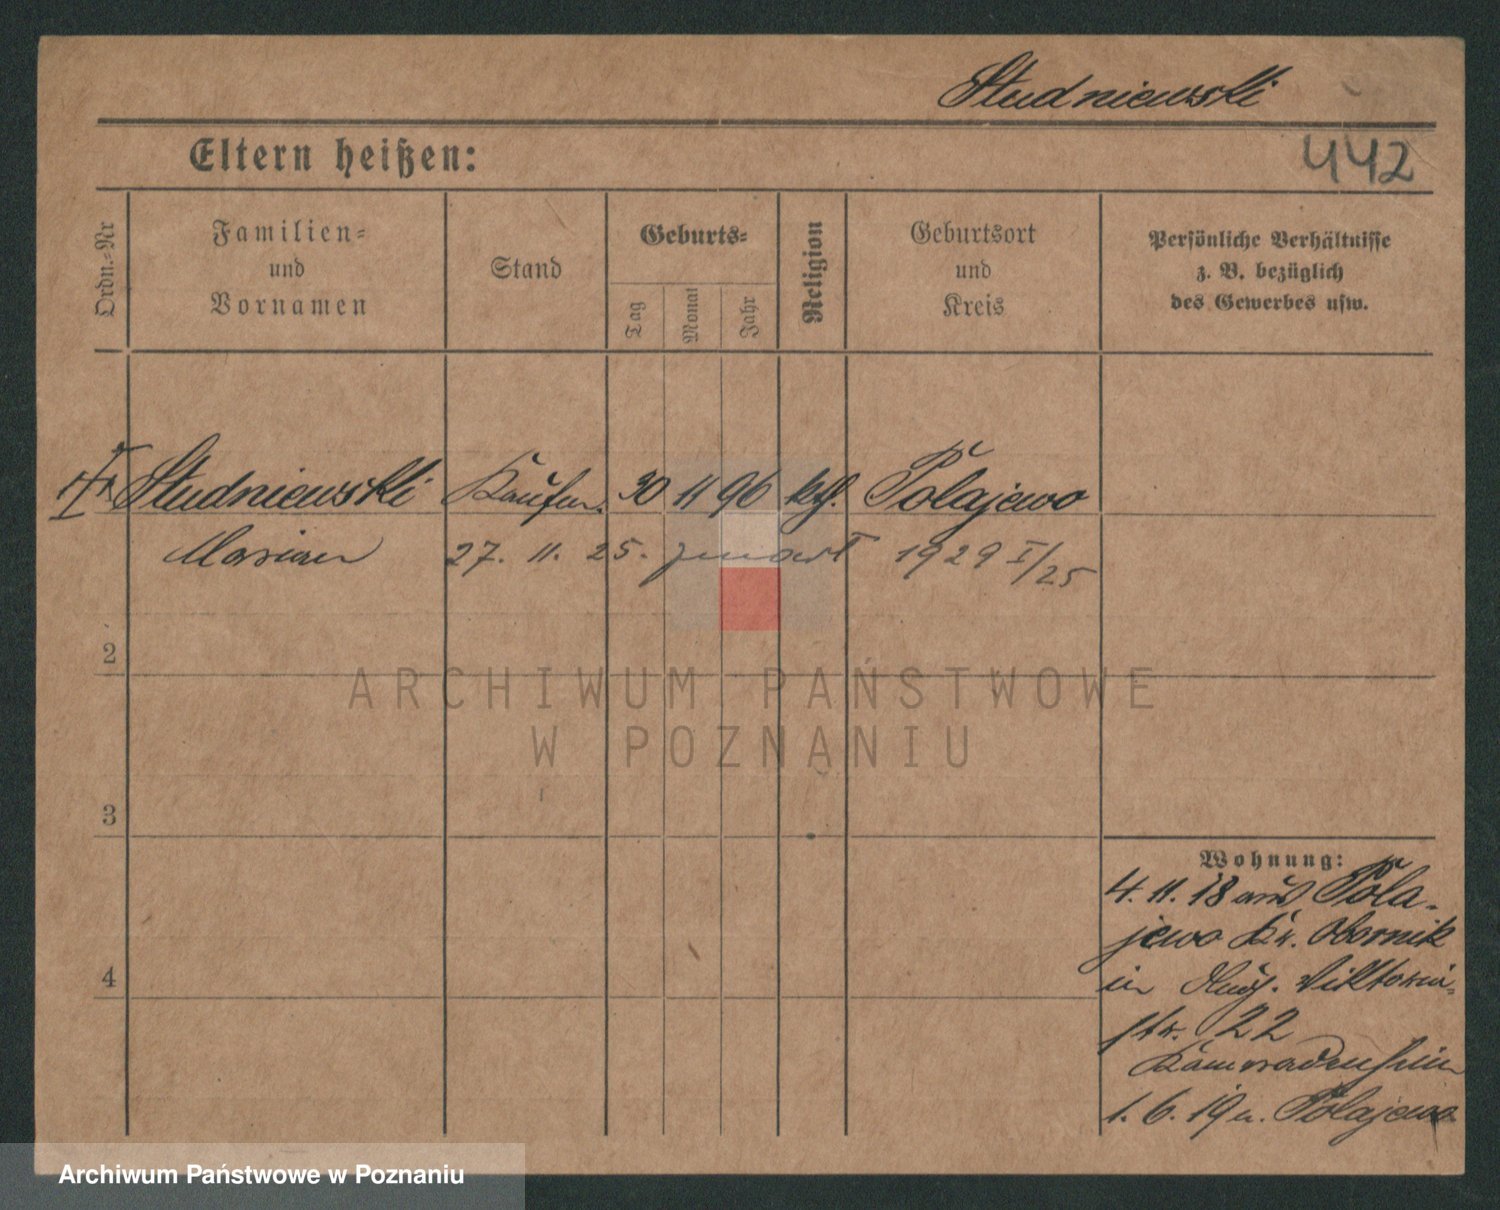 Studniewski
Eltern heißen:
442
Ordn.-Nr
Familien-
und
Vornamen
Stand
Geburts-
Tag
Monat
Jahr
Religion
Geburtsort
und
Kreis
Persönliche Verhältnisse
z. B. bezüglich
des Gewerbes usw.
Studniewski Kaufm. 30 11 96 kth. Połajewo
Marian 27. 11. 25. zmarł 1929 I/25
2
ARCHIWUM PAŃSTWOWE
W POZNANIU
3
Wohnung:
4. 11. 18 aus Pola-
jewo Kr. Obornik
4
in Viktoria-
str. 22
1. 6. 19 n. Polajewo
Archiwum Państwowe w Poznaniu